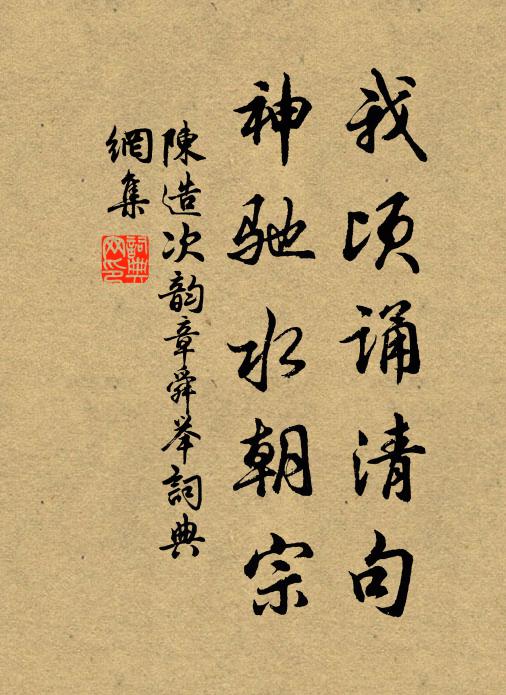 我顷诵清句
神驰水朝宗
陳造次韵章舜举詞典
網集
詞典網印